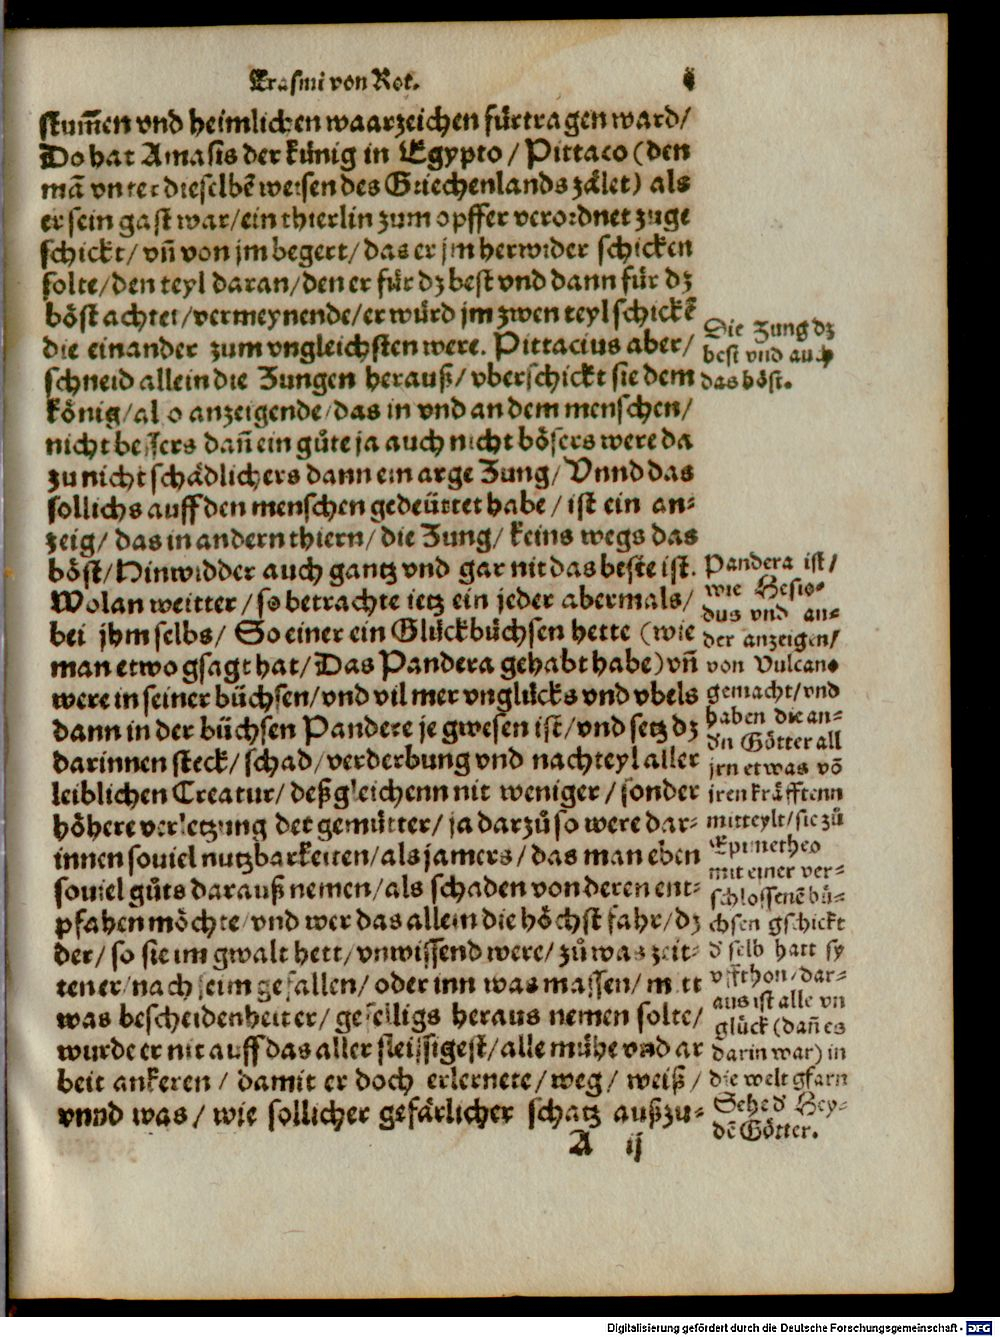 Erasmi von Rot.
stum̃en vnd heimlichen waarzeichen fürtragen ward/
Do hat Amasis der künig in Egypto / Pittaco (den
mā vnter dieselbē weisen des Griechenlands zälet) als
er sein gast war/ein thierlin zum opffer verordnet zuge
schickt/ vn̄ von jm begert/ das er jm herwider schicken
solte/den teyl daran/den er für dz best vnd dann für dz
böst achtet/vermeynende/er würd jm zwen teyl schickē
die einander zum vngleichsten were. Pittacius aber/
schneid allein die Zungen herauß/ vberschickt sie dem
könig/also anzeigende/das in vnd an dem menschen/
nicht bessers dan̄ ein gůte ja auch nicht bösers were da
zu nicht schädlichers dann ein arge Zung/ Vnnd das
sollichs auff den menschen gedeüttet habe / ist ein an-
zeig/ das in andern thiern/ die Zung/ keins wegs das
böst/Hinwidder auch gantz vnd gar nit das beste ist.
Wolan weitter/so betrachte ietz ein jeder abermals/
bei jhm selbs/ So einer ein Glückbüchsen hette (wie
man etwo gsagt hat/Das Pandera gehabt habe) vn̄
were in seiner büchsen/vnd vil mer vnglücks vnd vbels
dann in der büchsen Pandere je gwesen ist/vnd setz dz
darinnen steck/ schad/verderbung vnd nachteyl aller
leiblichen Creatur/ deßgleichenn nit weniger/sonder
höhere verletzung der gemütter/ ja darzů so were dar-
innen souiel nutzbarkeiten/als jamers/das man eben
souiel gůts darauß nemen/als schaden von deren ent-
pfahen möchte/vnd wer das allein die höchst fahr/dz
der/ so sie im gwalt hett/vnwissend were/ zů was zeit-
tener/nach seim gefallen/oder inn was massen/mitt
was bescheidenheit er/ gefelligs heraus nemen solte/
wurde er nit auff das aller fleissigest/alle mühe vnd ar
beit ankeren / damit er doch erlernete/weg/ weiß /
vnnd was/ wie sollicher gefärlicher schatz außzu-
A ij
Die Zung dz
best vnd auch
das böst.
Pandera ist/
wie Hesio-
dus vnd an-
der anzeigen/
von Vulcano
gemacht/vnd
haben die an-
dn̄ Götter all
jrn etwas vō
jren kräfftenn
mitteylt/sie zů
Epimetheo
mit einer ver-
schlossenē bü-
chsen gschickt
d' selb hatt sy
vffthon/dar-
aus ist alle vn
glück (dan̄ es
darin war) in
die welt gfarn
Sehe d' Hey-
dē Götter.
Digitalisierung gefördert durch die Deutsche Forschungsgemeinschaft - DFG